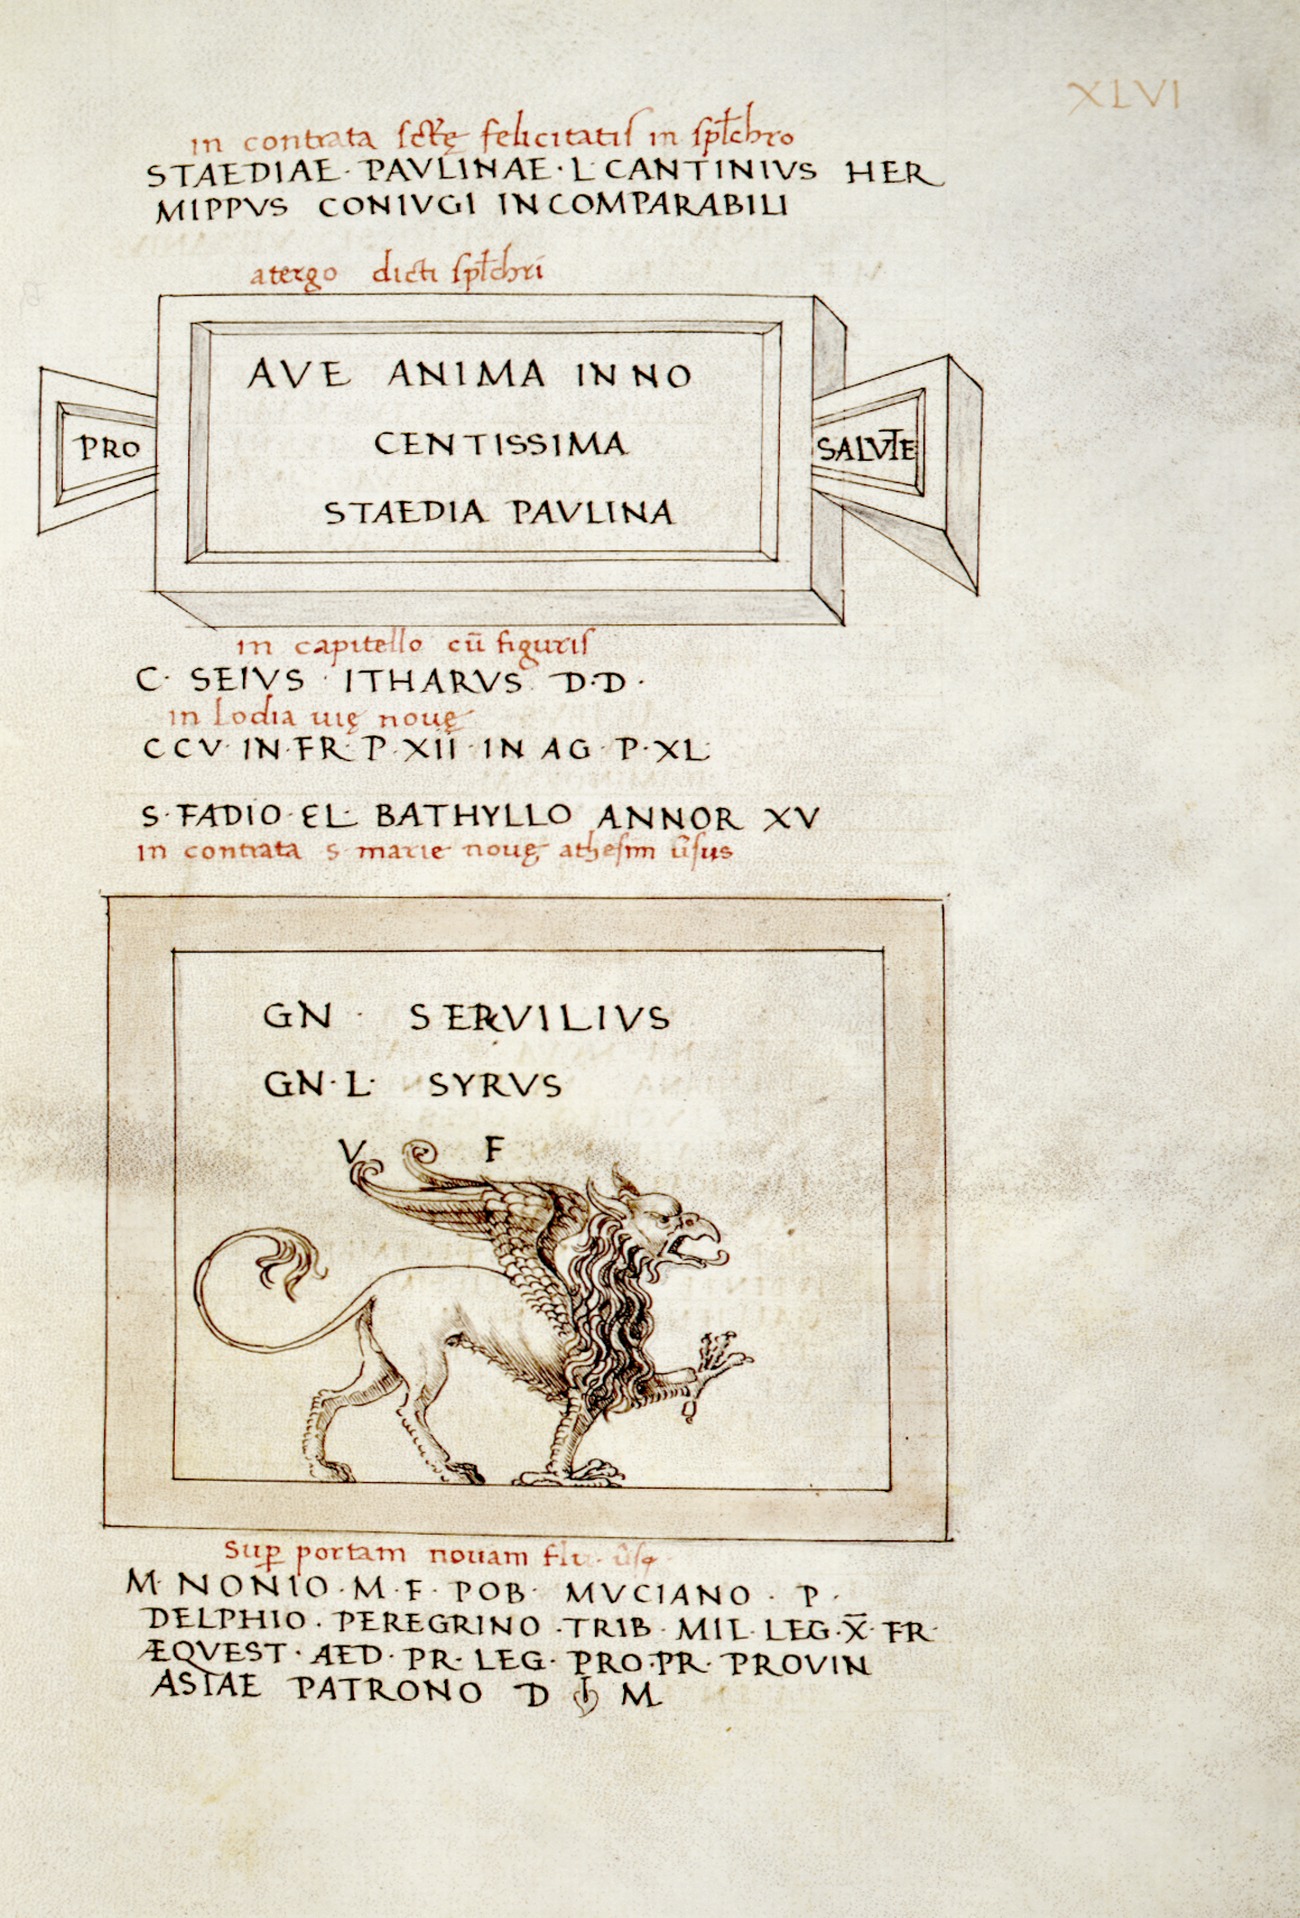 XLVI
in contrata sctę felicitatis in spl̄chro
STAEDIAE · PAVLINAE · L · CANTINIVS HER
MIPPVS CONIVGI INCOMPARABILI
atergo dicti spl̄chri
AVE ANIMA INNO
CENTISSIMA
STAEDIA PAVLINA
PRO
SALVTE
in capitello cū figuris
C · SEIVS · ITHARVS D · D ·
in lodia uię nouę
CCV · IN · FR · P · XII · IN AG · P · XL
S · FADIO · EL · BATHYLLO ANNOR XV
in contrata s marie nouę athesim ūsus
GN · SERVILIVS
GN · L · SYRVS
V F
Sup portam nouam
M · NONIO · M · F · POB · MVCIANO · P ·
DELPHIO · PEREGRINO · TRIB · MIL · LEG · X̄ · FR
ÆQVEST · AED · PR · LEG · PRO · PR · PROVIN
ASIAE PATRONO D M